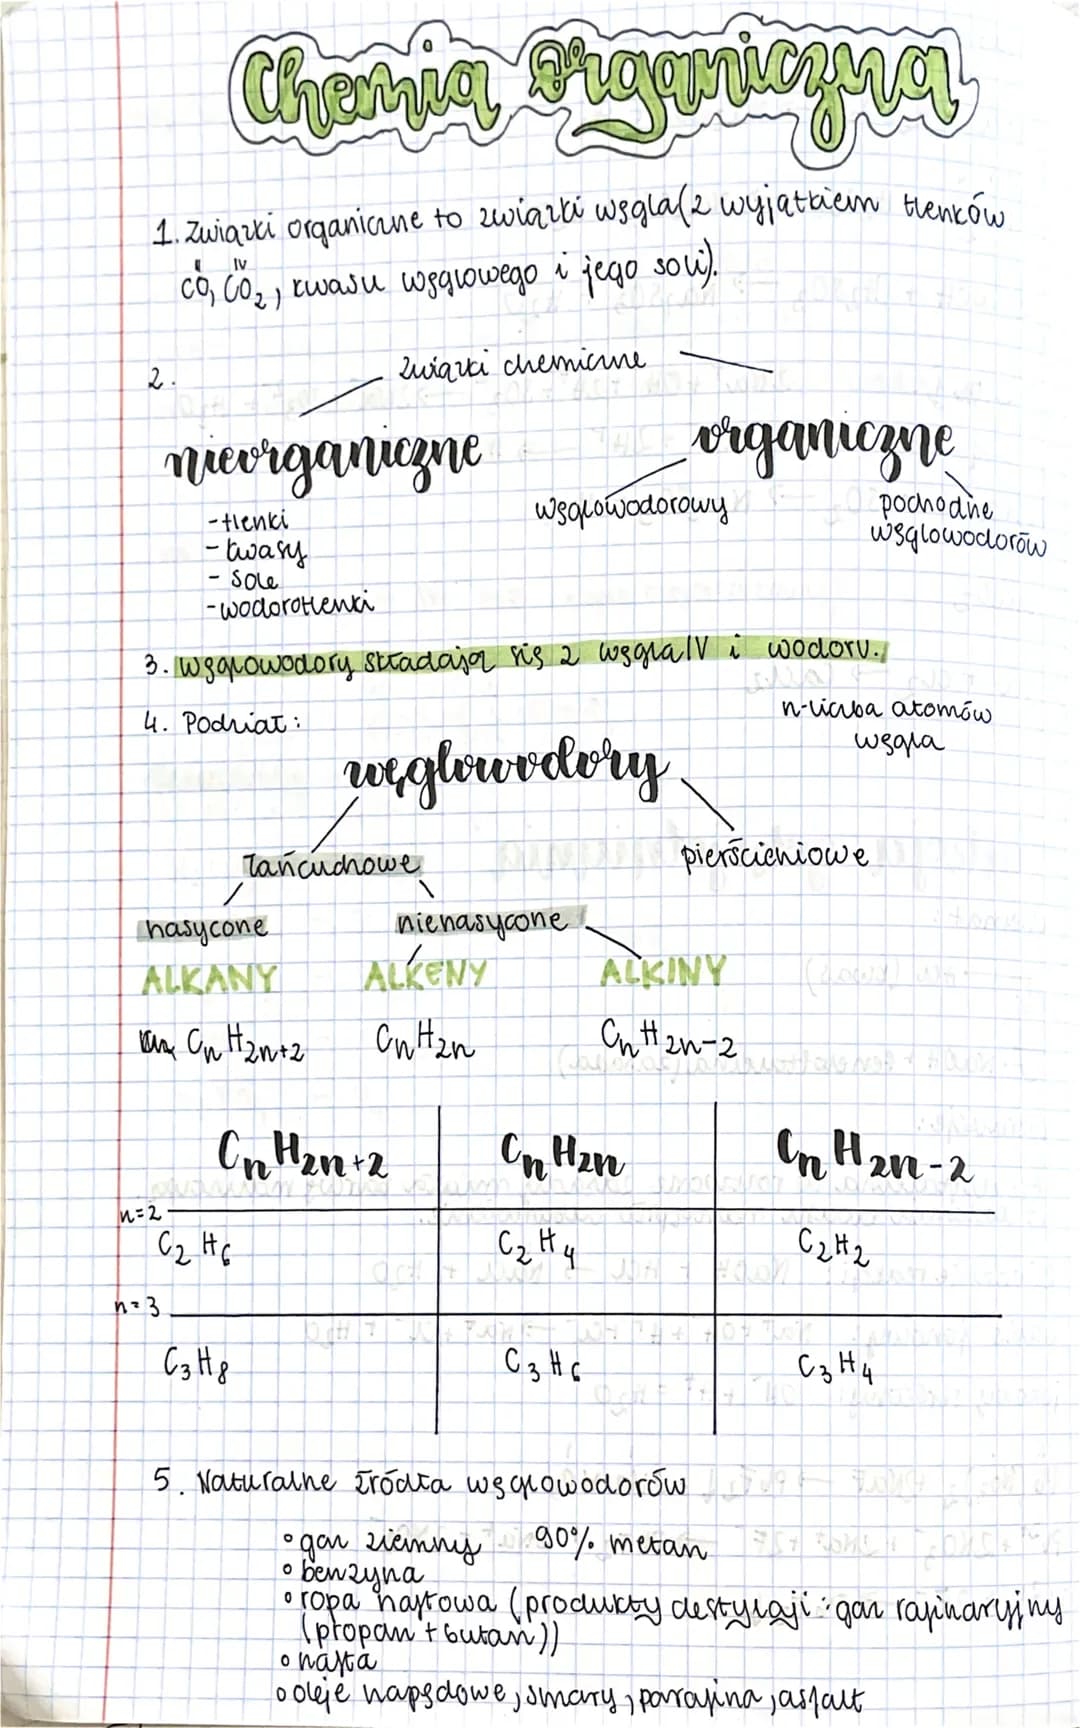 Chemia organiczna
1. Związki organiczne to związki węgla (z wyjątkiem tlenków
II IV
CO, CO₂, kwasu węglowego i jego soli).
2. związki chemiczne
nieorganiczne organiczne
węglowodorowy pochodne
węglowodorów
- tlenki
- kwasy
- sole
- wodorotlenki
3. Węglowodory składają się z węgla IV i wodoru.
n-liczba atomów
węgla
4. Podział:
węglowodory
łańcuchowe pierścieniowe
nasycone nienasycone
ALKANY ALKENY ALKINY
CnH2n+2 CnH2n CnH2n-2
CnH2n+2 CnH2n CnH2n-2
n=2
C₂H₆ C₂H₄ C₂H₂
n=3
C₃H₈ C₃H₆ C₃H₄
5. Naturalne źródła węglowodorów
◦ gaz ziemny 90% metan
◦ benzyna
◦ ropa naftowa (produkty destylacji: gaz rafinaryjny
(propan + butan))
◦ nafta
◦ oleje napędowe, smary, parafina, asfalt